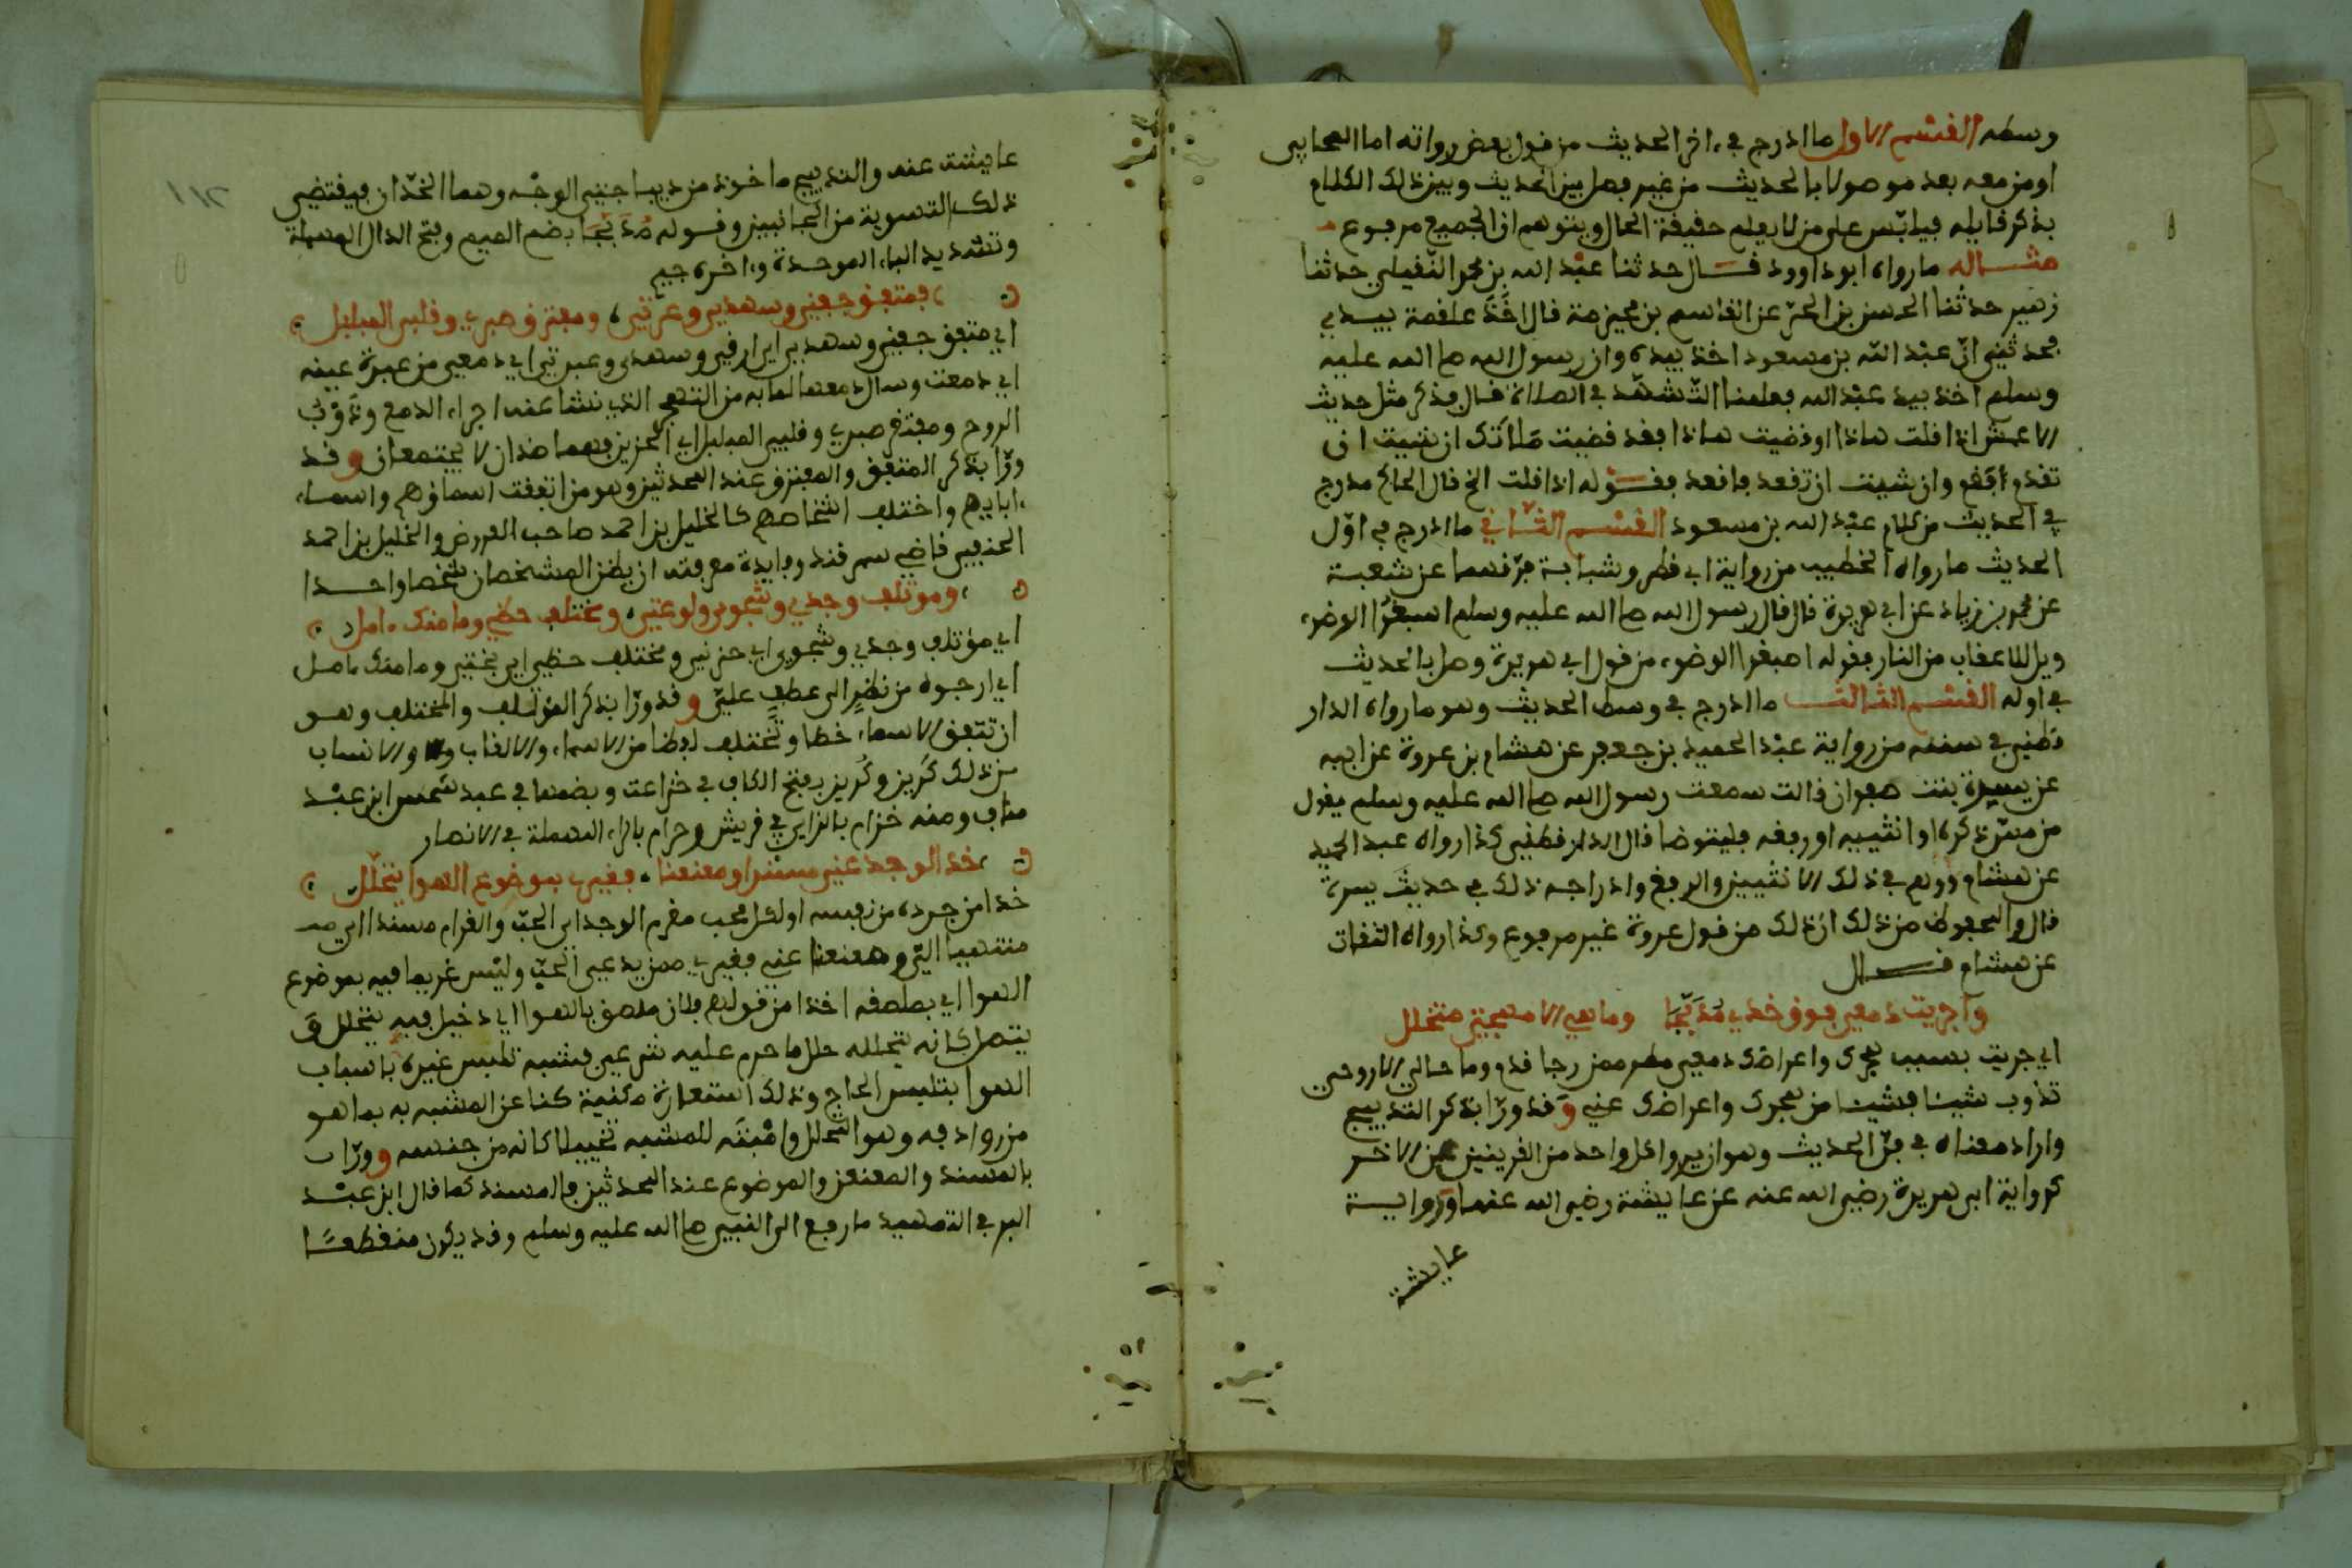 وسطه القسم الاول ما ادرج في ءاخر الحديث من قول بعض رواته اما الصحابي
او من معه بعد موصولا بالحديث من غير فصل بين الحديث وبين ذلك الكلام
بذكر قايله فيلتبس على من لا يعلم حقيقة الحال ويتوهم ان الجميع مرفوع
مثاله ما رواه ابو داوود قال حدثنا عبد الله بن محمد النفيلي حدثنا
زهير حدثنا الحسن بن الحر عن القاسم بن مخيرمة قال اخذ علقمة بيدي
فحدثني ان عبد الله بن مسعود اخذ بيده وان رسول الله صلى الله عليه
وسلم اخذ بيد عبد الله فعلمنا التشهد في الصلاة قال فذكر مثل حديث
الاعمش اذا قلت هاذا او قضيت هاذا فقد قضيت صلاتك ان شيت ان
تقم فقم وان شيت ان تقعد فاقعد فقوله اذا قلت الخ قال الحاكم مدرج
في الحديث من كلام عبد الله بن مسعود القسم الثاني ما ادرج في اول
الحديث ما رواه الخطيب من رواية ابي قطن وشبابة فرقهما عن شعبة
عن محمد بن زياد عن ابي هريرة قال قال رسول الله صلى الله عليه وسلم اسبغوا الوضوء
ويل للاعقاب من النار فقوله اسبغوا الوضوء من قول ابي هريرة وصل بالحديث
في اوله القسم الثالث ما ادرج في وسط الحديث وهو ما رواه الدار
قطني في سننه من رواية عبد الحميد بن جعفر عن هشام بن عروة عن ابيه
عن بسرة بنت صفوان قالت سمعت رسول الله صلى الله عليه وسلم يقول
من مس ذكره او انثييه او رفغه فليتوضا قال الدارقطني كذا رواه عبد الحميد
عن هشام ووهم في ذلك الانثيين والرفغ وادراجه ذلك في حديث بسرة
قال والمحفوظ من ذلك ان ذلك من قول عروة غير مرفوع وكذا رواه الثقات
عن هشام قال
واجريت دمعي فوق خدي مدبجا وما هي الا مهجتي تتحلل
اي جريت بسبب هجرك واعراضك دمعي مطر ممن رجا قدم وما حالي الا روحي
تذوب شيئا فشيئا من هجرك واعراضك عني وقد ورا بذكر التدبيج
واراد معناه في فن الحديث وهو ان يروي كل واحد من القرينين عن الاخر
كرواية ابي هريرة رضي الله عنه عن عايشة رضي الله عنها ورواية
عايشة
١١٢
عايشة عنه والتدبيج ماخوذ من ديباجتي الوجه وهما الخدان فيقتضي
ذلك التسوية من الجانبين وقوله مدبجا بضم الميم وفتح الدال المهملة
وتشديد الباء الموحدة وءاخره جيم
فمتفق جفني وسهدي وعبرتي ومفترق صبري وقلبي المبلبل
اي متفق جفني وسهدي اي ارقي وسهدي وعبرتي اي دمعي من عبرة عينه
اي دمعت وسال دمعها لما به من التهيج الذي نشا عنه اجراء الدمع وذوب
الروح ومفترق صبري وقلبي المبلبل اي الحزين فهما ضدان لا يجتمعان وقد
ورا بذكر المتفق والمفترق عند المحدثين وهو من اتفقت اسماؤهم واسماء
ءابايهم واختلفت اشخاصهم كالخليل بن احمد صاحب العروض والخليل بن احمد
الحنفي قاضي سمرقند وفايدة معرفته ان يظن الشخصان شخصا واحدا
ومؤتلف وجدي وشجوي ولوعتي ومختلف حظي وما منك ءامل
اي مؤتلف وجدي وشجوي اي حزني ومختلف حظي اي بختي وما منك ءامل
اي ارجوه من نظر الى عطف علي وقد ورا بذكر المؤتلف والمختلف وهو
ان تتفق الاسماء خطا وتختلف لفظا من الاسماء والالقاب والانساب
من ذلك كريز وكريز بفتح الكاف في خزاعة وبضمها في عبد شمس ابن عبد
مناف ومنه حزام بالزاي في قريش وحرام بالراء المهملة في الانصار
خذ الوجد عني مسندا ومعنعنا فغيري بموضوع الهوا يتحلل
خذا من جرده من نفسه اولكل محب مغرم الوجد اي الحب والغرام مسندا اي
منتهيا الي ومعنعنا عني فغيري ممن يدعي الحب وليس غريما فيه بموضوع
الهوا اي بملصقه اخذا من قولهم فلان ملصق بالهوا اي دخيل فيه يتحلل
يتصل كانه تحلله حلل ما حرم عليه شرعي فشبه تلبس غيره باسباب
الهوا بتلبس الحاج وذلك استعارة مكنية كنا عن المشبه به بما هو
من روادفه وهو التحلل واثبته للمشبه تخييلا كانه من جنسه وورا
بالمسند والمعنعن والموضوع عند المحدثين فالمسند كما قال ابن عبد
البر في التمهيد ما رفع الى النبي صلى الله عليه وسلم وقد يكون منقطعا